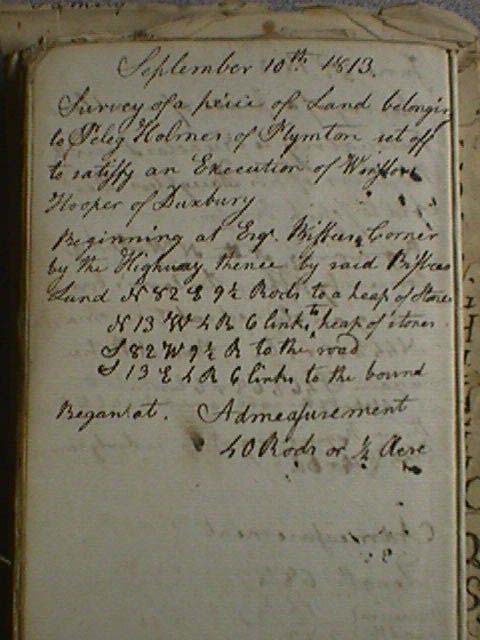 September 10th 1813.
Survey of a peice of Land belongin
to Peleg Holmes of Plymton set off
to satisfy an Execution of Winslow
Hooper of Duxbury
Beginning at Esqr. Bisbees Corner
by the Highway thence by said Bisbees
Land N 82 E 9½ Rods to a heap of Stones
N 13 W 4 R 6 links to heap of stones
S 82 W 9½ R to the road
S 13 E 4 R 6 links to the bound
Began at. Admeasurement
40 Rods or ¼ Acre